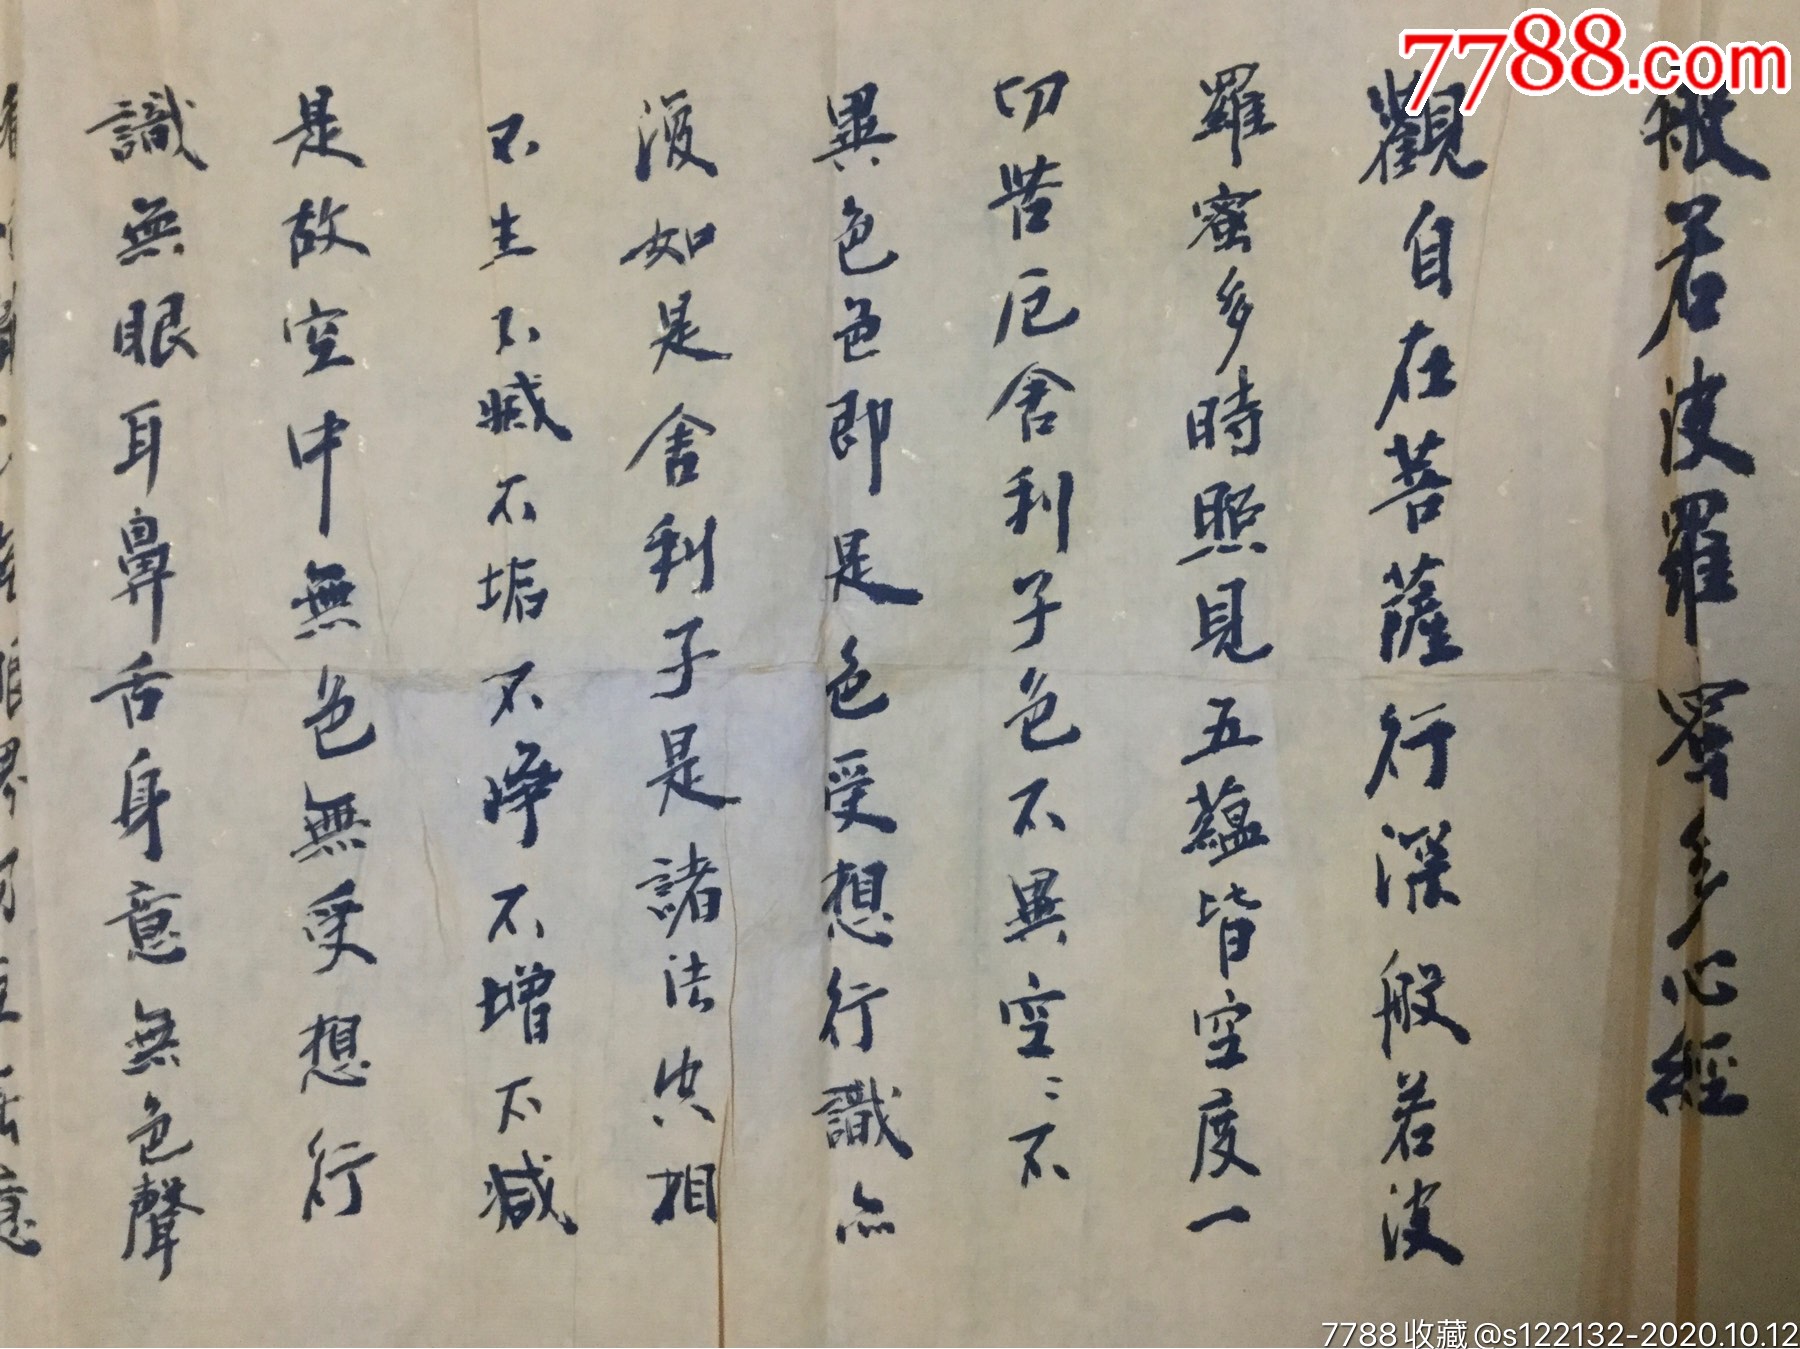 7788.com
般若波羅蜜多心經
觀自在菩薩行深般若波
羅蜜多時照見五蘊皆空度一
切苦厄舍利子色不異空〻不
異色色即是色受想行識亦
復如是舍利子是諸法相
不生不滅不垢不淨不增不減
是故空中無色無受想行
識無眼耳鼻舌身意無色聲
7788收藏@s122132-2020.10.12